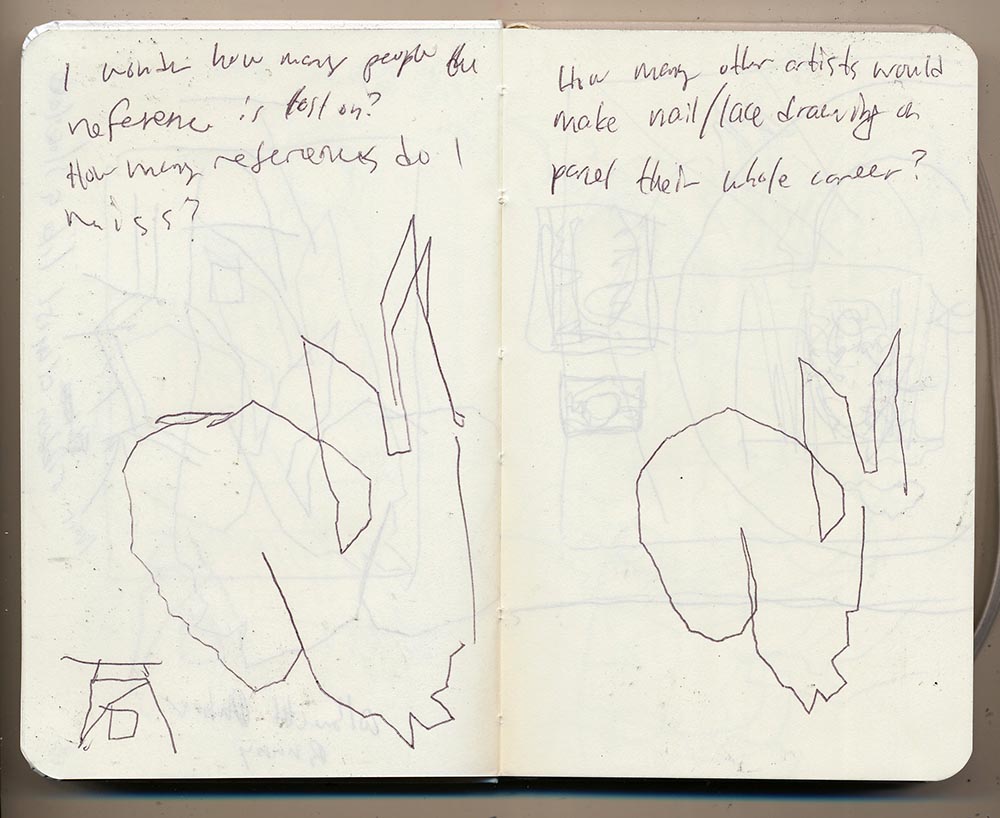 I wonder how many people the
reference is lost on?
How many references do I
miss?
How many other artists would
make nail/lace drawing on
panel their whole career?